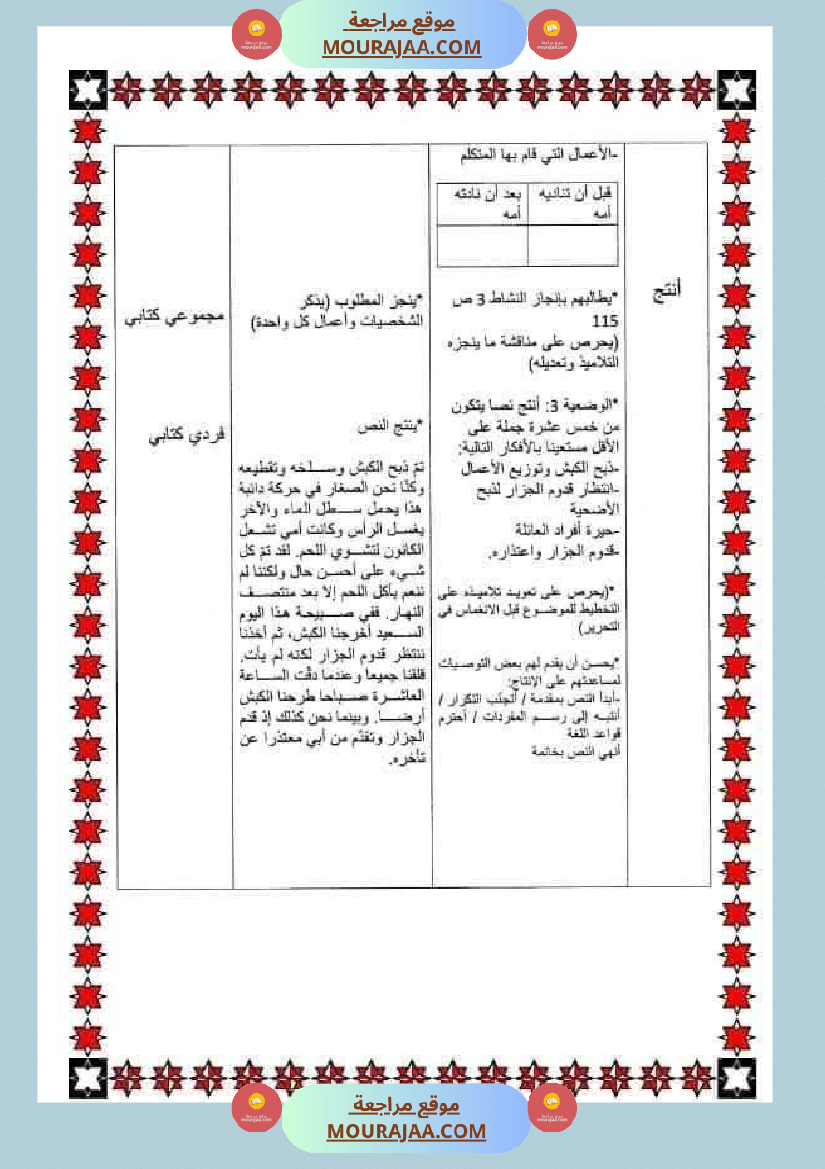 موقع مراجعة
MOURAJAA.COM
-الأعمال التي قام بها المتكلم
قبل أن تناديه أمه
بعد أن نادته أمه
أنتج
*يطالبهم بإنجاز النشاط 3 ص
115
(يحرص على مناقشة ما ينجزه
التلاميذ وتعديله)
*الوضعية 3: أنتج نصا يتكون
من خمس عشرة جملة على
الأقل مستعينا بالأفكار التالية:
-ذبح الكبش وتوزيع الأعمال
-انتظار قدوم الجزار لذبح
الأضحية
-حيرة أفراد العائلة
-قدوم الجزار واعتذاره.
*(يحرص على تعويد تلاميذه على
التخطيط للموضوع قبل الانغماس في
التحرير)
*يحسن أن يقدم لهم بعض التوصيات
لمساعدتهم على الإنتاج:
-أبدأ النص بمقدمة / أتجنب التكرار /
أنتبه إلى رسم المفردات / أحترم
قواعد اللغة
أنهي النص بخاتمة
*ينجز المطلوب (يذكر
الشخصيات وأعمال كل واحدة)
*ينتج النص
تمّ ذبح الكبش وسلخه وتقطيعه
وكنّا نحن الصغار في حركة دائبة
هذا يحمل سطل الماء والآخر
يغسل الرأس وكانت أمي تشعل
الكانون لتشوي اللحم. لقد تمّ كل
شيء على أحسن حال ولكننا لم
ننعم بأكل اللحم إلا بعد منتصف
النهار. ففي صبيحة هذا اليوم
السعيد أخرجنا الكبش، ثم أخذنا
ننتظر قدوم الجزار لكنه لم يأت.
قلقنا جميعا وعندما دقّت الساعة
العاشرة صباحا طرحنا الكبش
أرضا. وبينما نحن كذلك إذ قدم
الجزار وتقدّم من أبي معتذرا عن
تأخره.
مجموعي كتابي
فردي كتابي
موقع مراجعة
MOURAJAA.COM